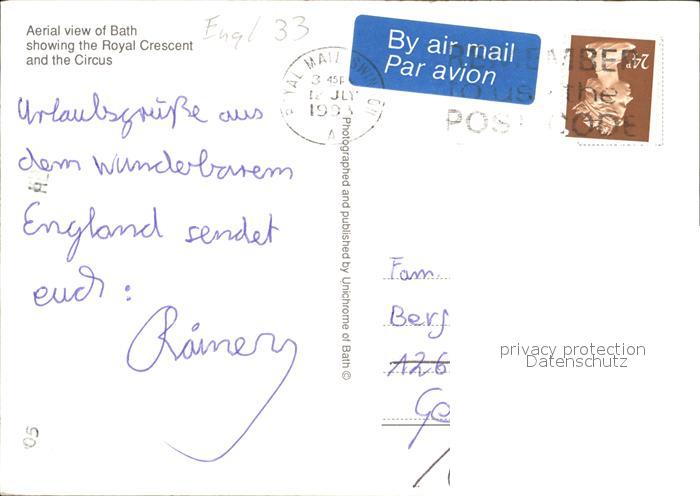 Aerial view of Bath
showing the Royal Crescent
and the Circus
Engl 33
By air mail
Par avion
ROYAL MAIL SWINDON
3 45P
12 JLY
1993
A
REMEMBER
to use the
POSTCODE
24P
Urlaubsgrüße aus
dem wunderbarem
England sendet
euch:
Rainer
Photographed and published by Unichrome of Bath ©
Fam.
Berg
126
Go
privacy protection
Datenschutz
05